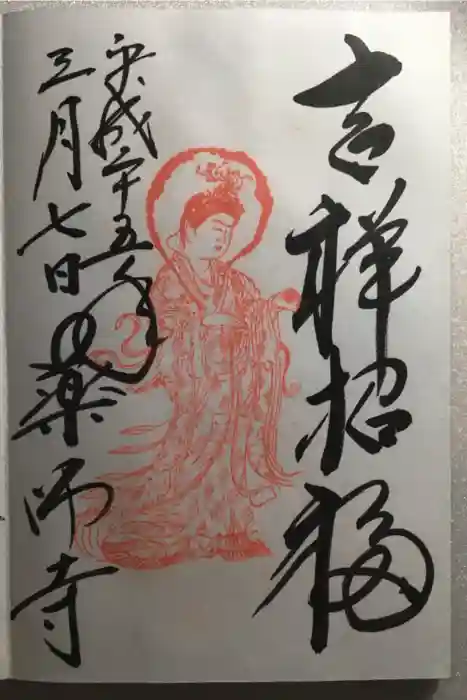 吉祥招福
平成二十五年
三月七日
薬師寺